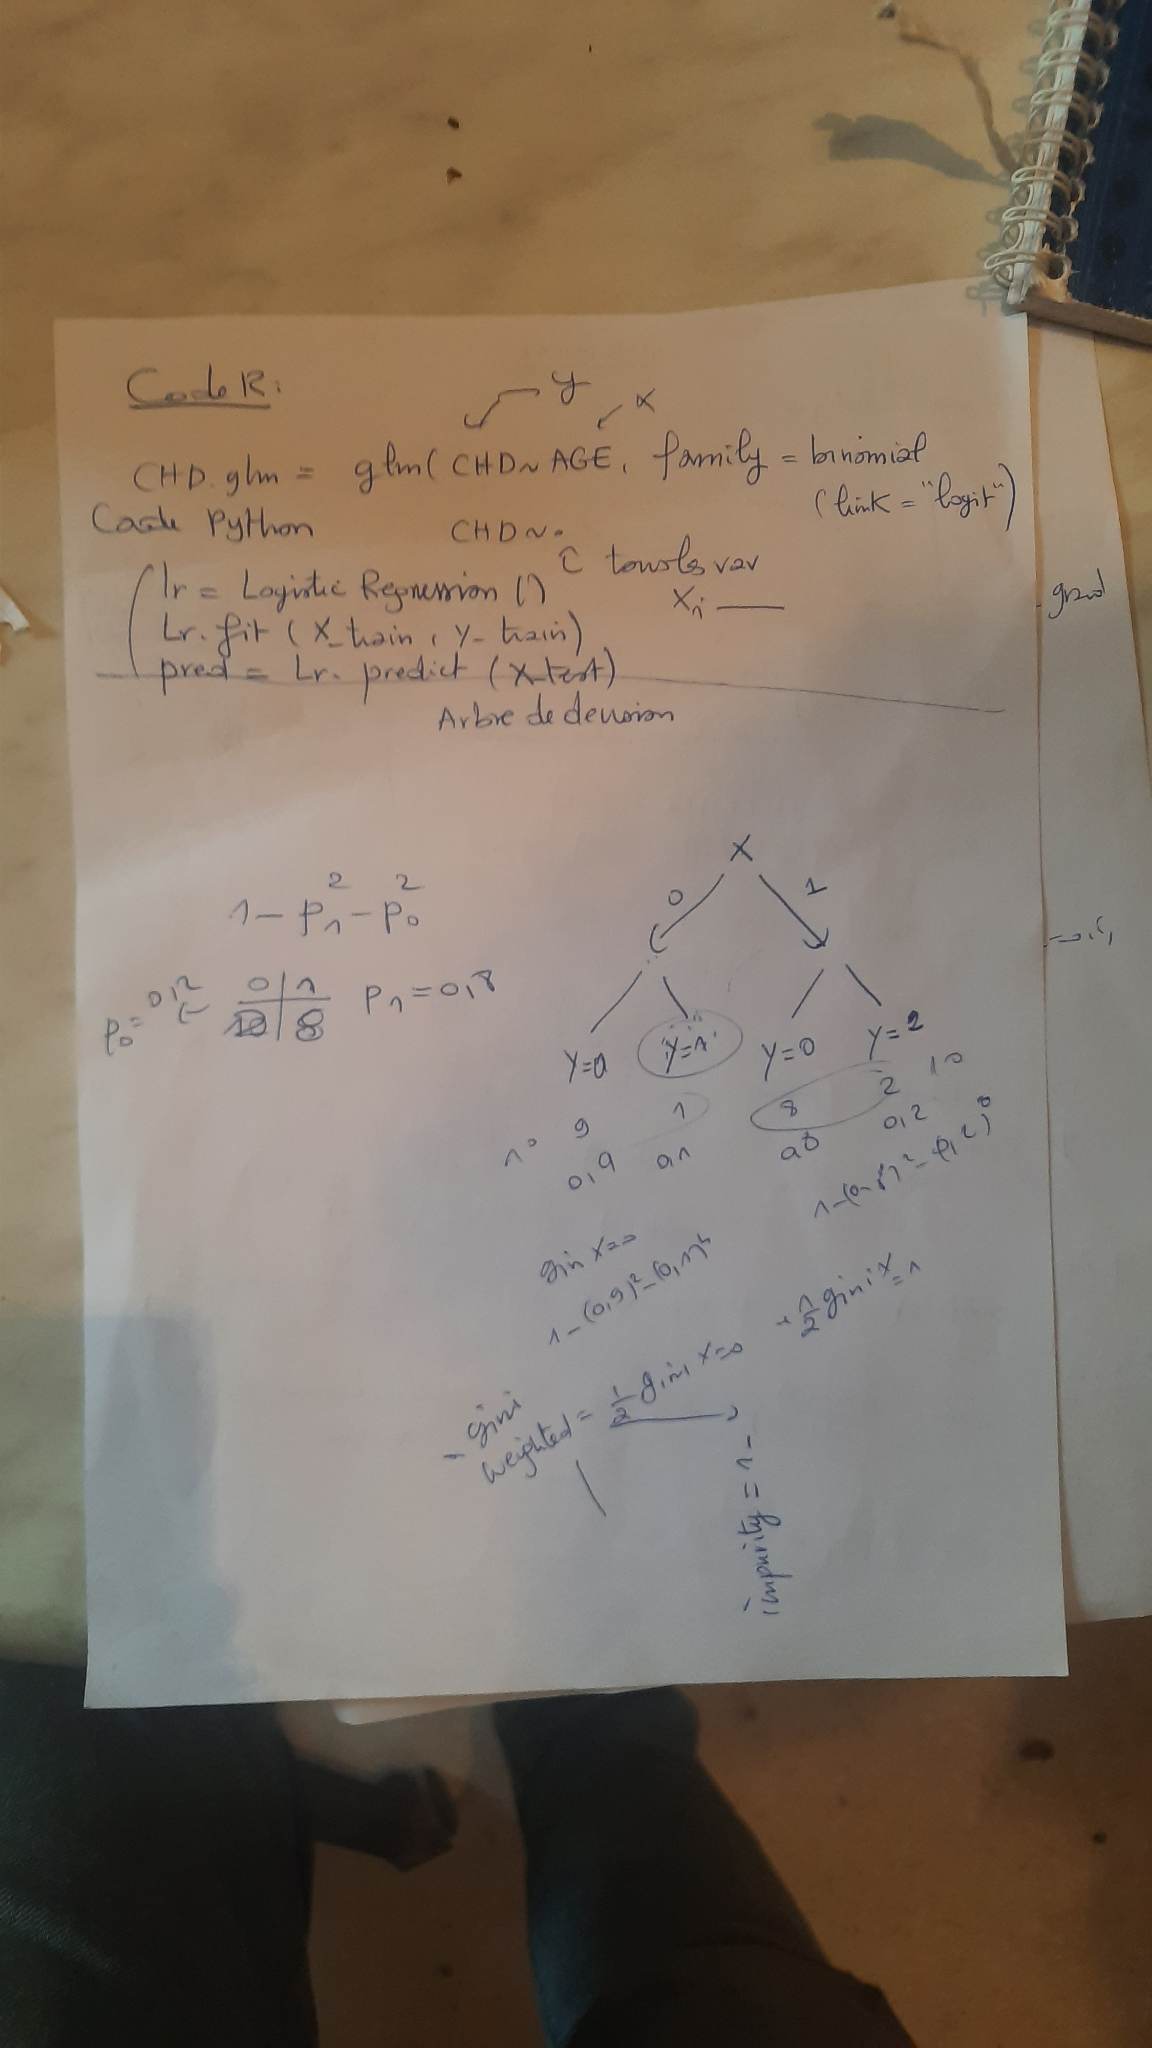 Code R:
y
x
CHD.glm = glm( CHD~AGE, family = binomial
(link = "logit")
Code Python
CHD~.
tous les var
lr = Logistic Regression ()
Xi
Lr. fit (X_train, y_train)
pred = Lr. predict (X_test)
Arbre de decision
X
0 1
1-p₁²-p₀²
p₀=0,2 0|1 p₁=0,8
8
Y=0 Y=1 Y=0 Y=2
10 9 1 8 2 10
0,9 0,1 0,8 0,2
1-(0,8)²-(0,2)²
gin X=0
1-(0,9)²-(0,1)²
- gini
weighted = 1/2 gini X=0 + 1/2 gini X=1
impurity = 1-
grand